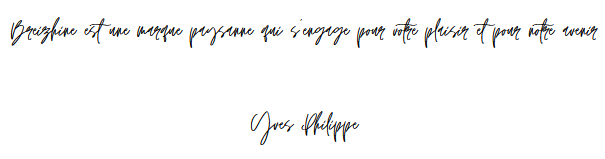 Breizhine est une marque paysanne qui s'engage pour votre plaisir et pour notre avenir
Yves Philippe